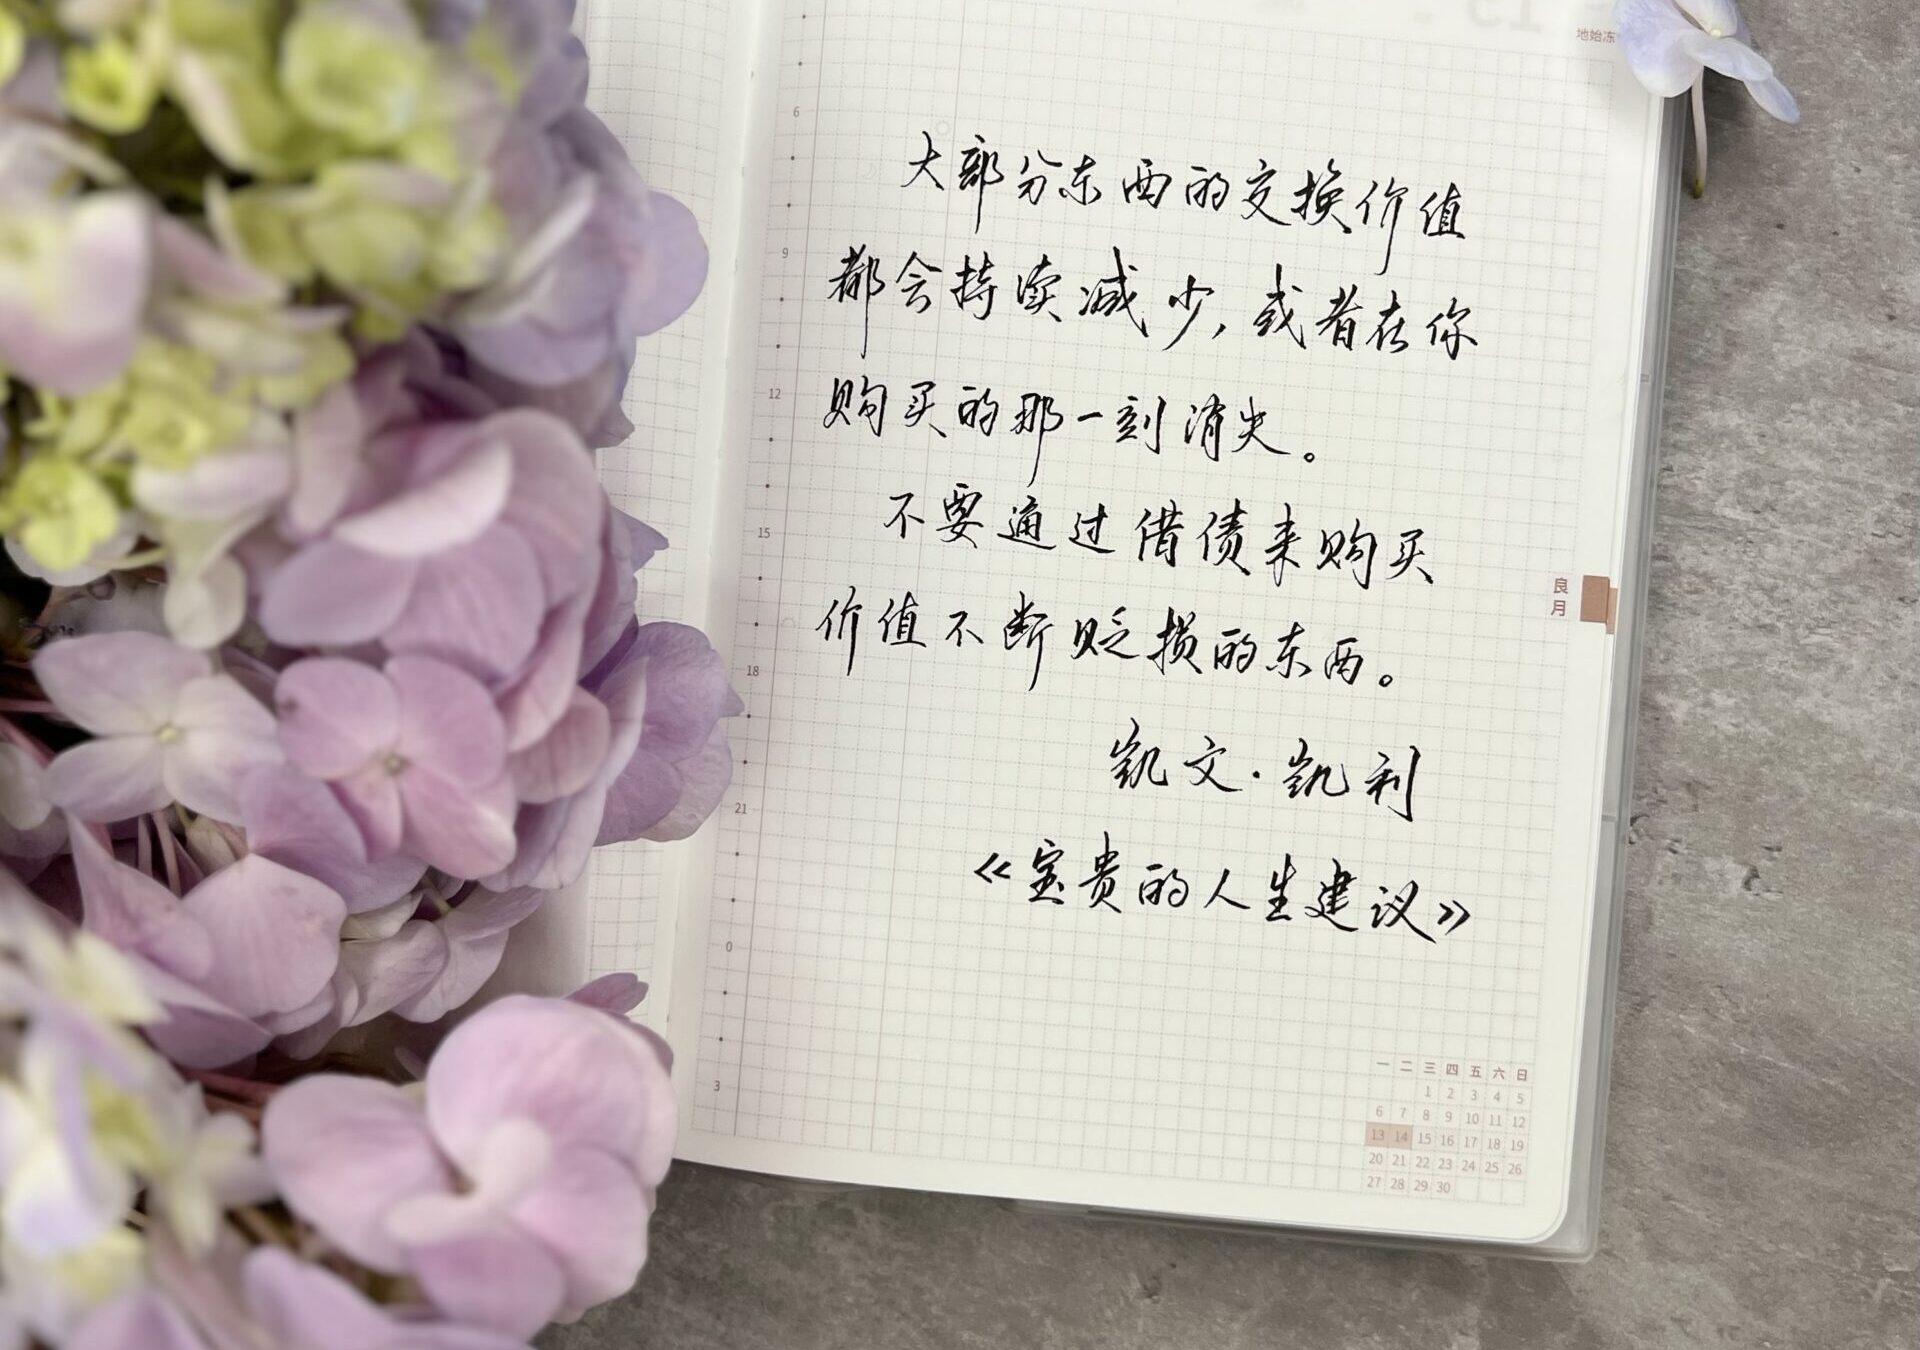 地始冻
6
大部分东西的交换价值
都会持续减少,或者在你
9
购买的那一刻消失。
12
不要通过借债来购买
15
价值不断贬损的东西。
良月
18
凯文·凯利
21
《宝贵的人生建议》
0
3
一 二 三 四 五 六 日
1 2 3 4 5
6 7 8 9 10 11 12
13 14 15 16 17 18 19
20 21 22 23 24 25 26
27 28 29 30